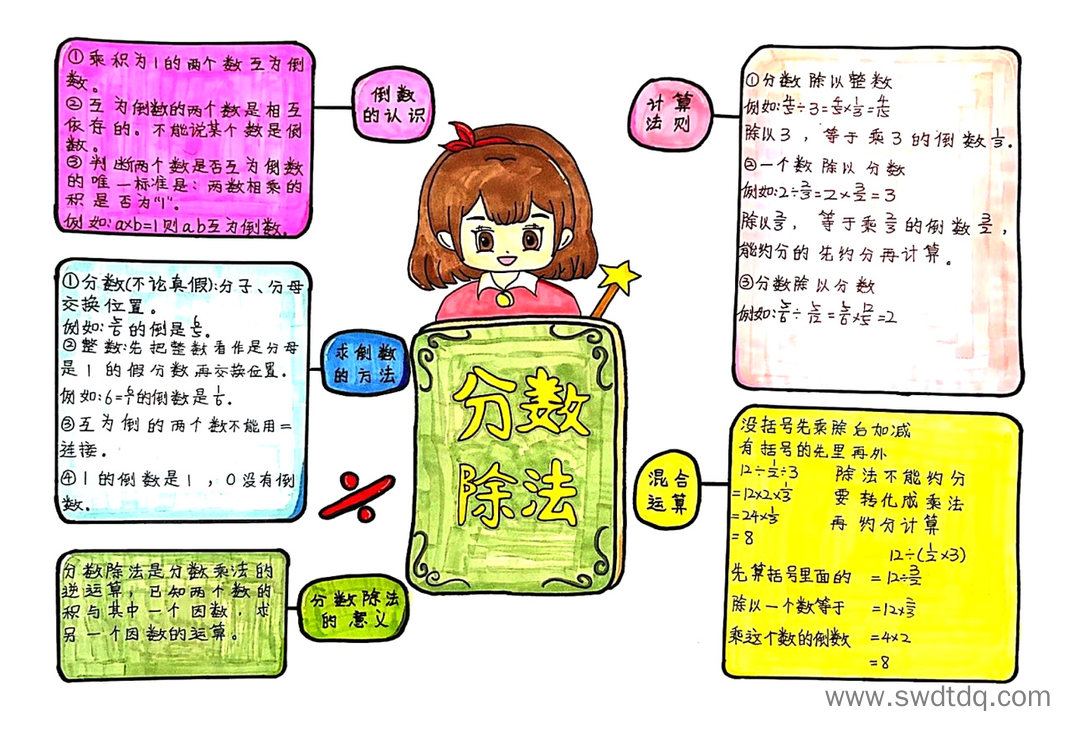 ①乘积为1的两个数互为倒
数。
②互为倒数的两个数是相互
依存的。不能说某个数是倒
数。
③判断两个数是否互为倒数
的唯一标准是:两数相乘的
积是否为"1"。
例如:a×b=1则ab互为倒数。
倒数
的认识
①分数(不论真假):分子、分母
交换位置。
例如:5/6的倒是6/5。
②整数:先把整数看作是分母
是1的假分数再交换位置。
例如:6=6/1的倒数是1/6.
③互为倒的两个数不能用=
连接。
④1的倒数是1,0没有倒
数.
求倒数
的方法
分数除法是分数乘法的
逆运算,已知两个数的
积与其中一个因数,求
另一个因数的运算。
分数除法
的意义
分数
除法
计算
法则
①分数除以整数
例如:4/5÷3=4/5×1/3=4/15
除以3,等于乘3的倒数1/3.
②一个数除以分数
例如:2÷2/3=2×3/2=3
除以2/3,等于乘2/3的倒数3/2,
能约分的先约分再计算。
③分数除以分数
例如:5/6÷5/12=5/6×12/5=2
混合
运算
没括号先乘除后加减
有括号的先里再外
12÷1/2÷3 除法不能约分
=12×2×1/3 要转化成乘法
=24×1/3 再约分计算
=8
12÷(1/2×3)
先算括号里面的 =12÷3/2
除以一个数等于 =12×2/3
乘这个数的倒数 =4×2
=8
www.swdtdq.com